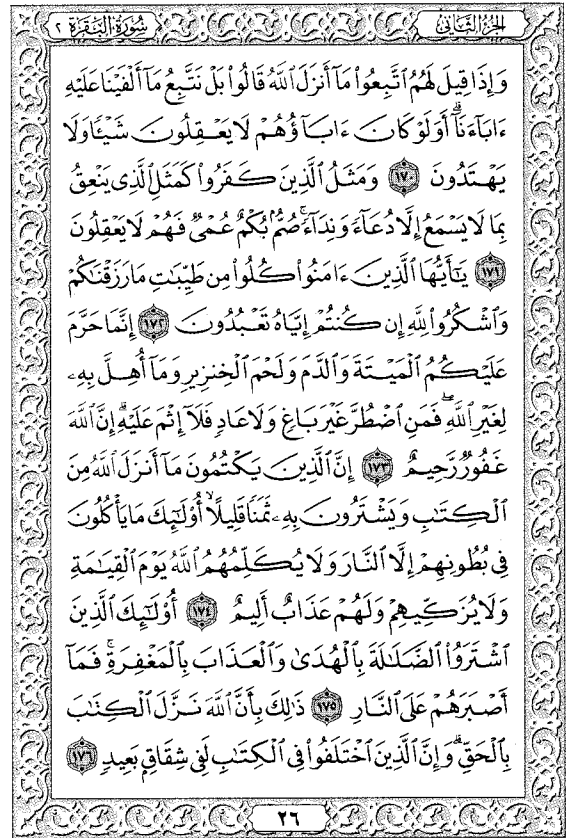 الجزء الثاني سورة البقرة ٢
وَإِذَا قِيلَ لَهُمُ ٱتَّبِعُوا۟ مَآ أَنزَلَ ٱللَّهُ قَالُوا۟ بَلْ نَتَّبِعُ مَآ أَلْفَيْنَا عَلَيْهِ
ءَابَآءَنَآۗ أَوَلَوْ كَانَ ءَابَآؤُهُمْ لَا يَعْقِلُونَ شَيْـًٔا وَلَا
يَهْتَدُونَ ١٧٠ وَمَثَلُ ٱلَّذِينَ كَفَرُوا۟ كَمَثَلِ ٱلَّذِى يَنْعِقُ
بِمَا لَا يَسْمَعُ إِلَّا دُعَآءً وَنِدَآءًۚ صُمٌّۢ بُكْمٌ عُمْىٌ فَهُمْ لَا يَعْقِلُونَ
١٧١ يَـٰٓأَيُّهَا ٱلَّذِينَ ءَامَنُوا۟ كُلُوا۟ مِن طَيِّبَـٰتِ مَا رَزَقْنَـٰكُمْ
وَٱشْكُرُوا۟ لِلَّهِ إِن كُنتُمْ إِيَّاهُ تَعْبُدُونَ ١٧٢ إِنَّمَا حَرَّمَ
عَلَيْكُمُ ٱلْمَيْتَةَ وَٱلدَّمَ وَلَحْمَ ٱلْخِنزِيرِ وَمَآ أُهِلَّ بِهِۦ
لِغَيْرِ ٱللَّهِۖ فَمَنِ ٱضْطُرَّ غَيْرَ بَاغٍ وَلَا عَادٍ فَلَآ إِثْمَ عَلَيْهِۗ إِنَّ ٱللَّهَ
غَفُورٌ رَّحِيمٌ ١٧٣ إِنَّ ٱلَّذِينَ يَكْتُمُونَ مَآ أَنزَلَ ٱللَّهُ مِنَ
ٱلْكِتَـٰبِ وَيَشْتَرُونَ بِهِۦ ثَمَنًا قَلِيلًاۙ أُو۟لَـٰٓئِكَ مَا يَأْكُلُونَ
فِى بُطُونِهِمْ إِلَّا ٱلنَّارَ وَلَا يُكَلِّمُهُمُ ٱللَّهُ يَوْمَ ٱلْقِيَـٰمَةِ
وَلَا يُزَكِّيهِمْ وَلَهُمْ عَذَابٌ أَلِيمٌ ١٧٤ أُو۟لَـٰٓئِكَ ٱلَّذِينَ
ٱشْتَرَوُا۟ ٱلضَّلَـٰلَةَ بِٱلْهُدَىٰ وَٱلْعَذَابَ بِٱلْمَغْفِرَةِۚ فَمَآ
أَصْبَرَهُمْ عَلَى ٱلنَّارِ ١٧٥ ذَٰلِكَ بِأَنَّ ٱللَّهَ نَزَّلَ ٱلْكِتَـٰبَ
بِٱلْحَقِّۗ وَإِنَّ ٱلَّذِينَ ٱخْتَلَفُوا۟ فِى ٱلْكِتَـٰبِ لَفِى شِقَاقٍۭ بَعِيدٍ ١٧٦
٢٦